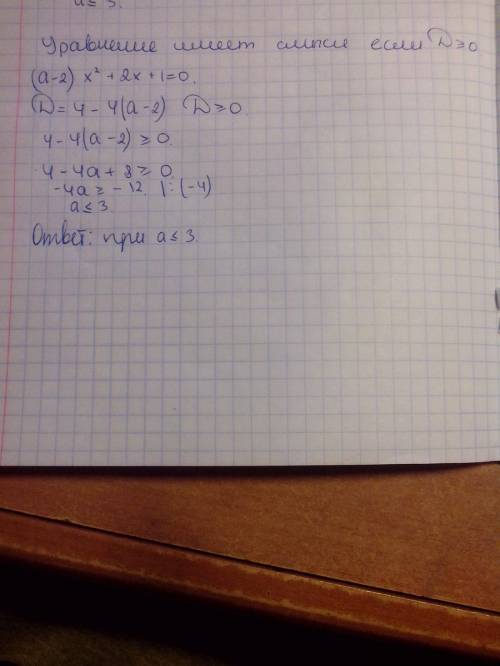 a ≤ 3.
Уравнение имеет смысл если D ≥ 0
(a-2) x² + 2x + 1 = 0.
D = 4 - 4(a-2) D ≥ 0
4 - 4(a-2) ≥ 0.
4 - 4a + 8 ≥ 0.
-4a ≥ -12. |:(-4)
a ≤ 3.
Ответ: при a ≤ 3.